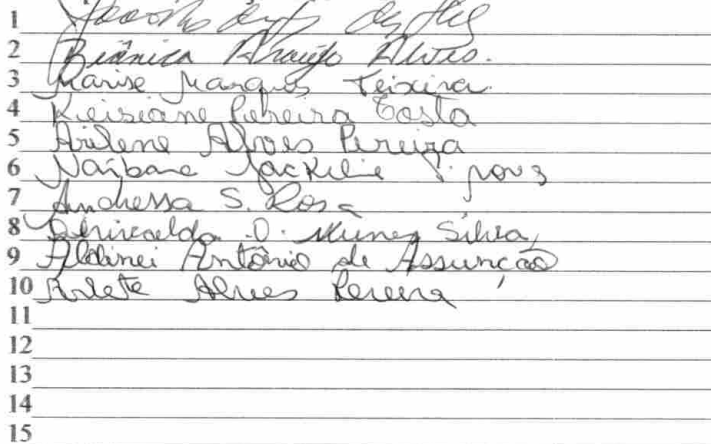 1
2 Biânica Araújo Alves.
3 Marise Marques Teixeira.
4 Keisiane Pereira Costa
5 Arilene Alves Pereira
6 Jackeline
7 Andressa S. Rosa
8 O. Nunes Silva
9 Aldinei Antônio de Assunção
10 Arlete Alves Pereira
11
12
13
14
15